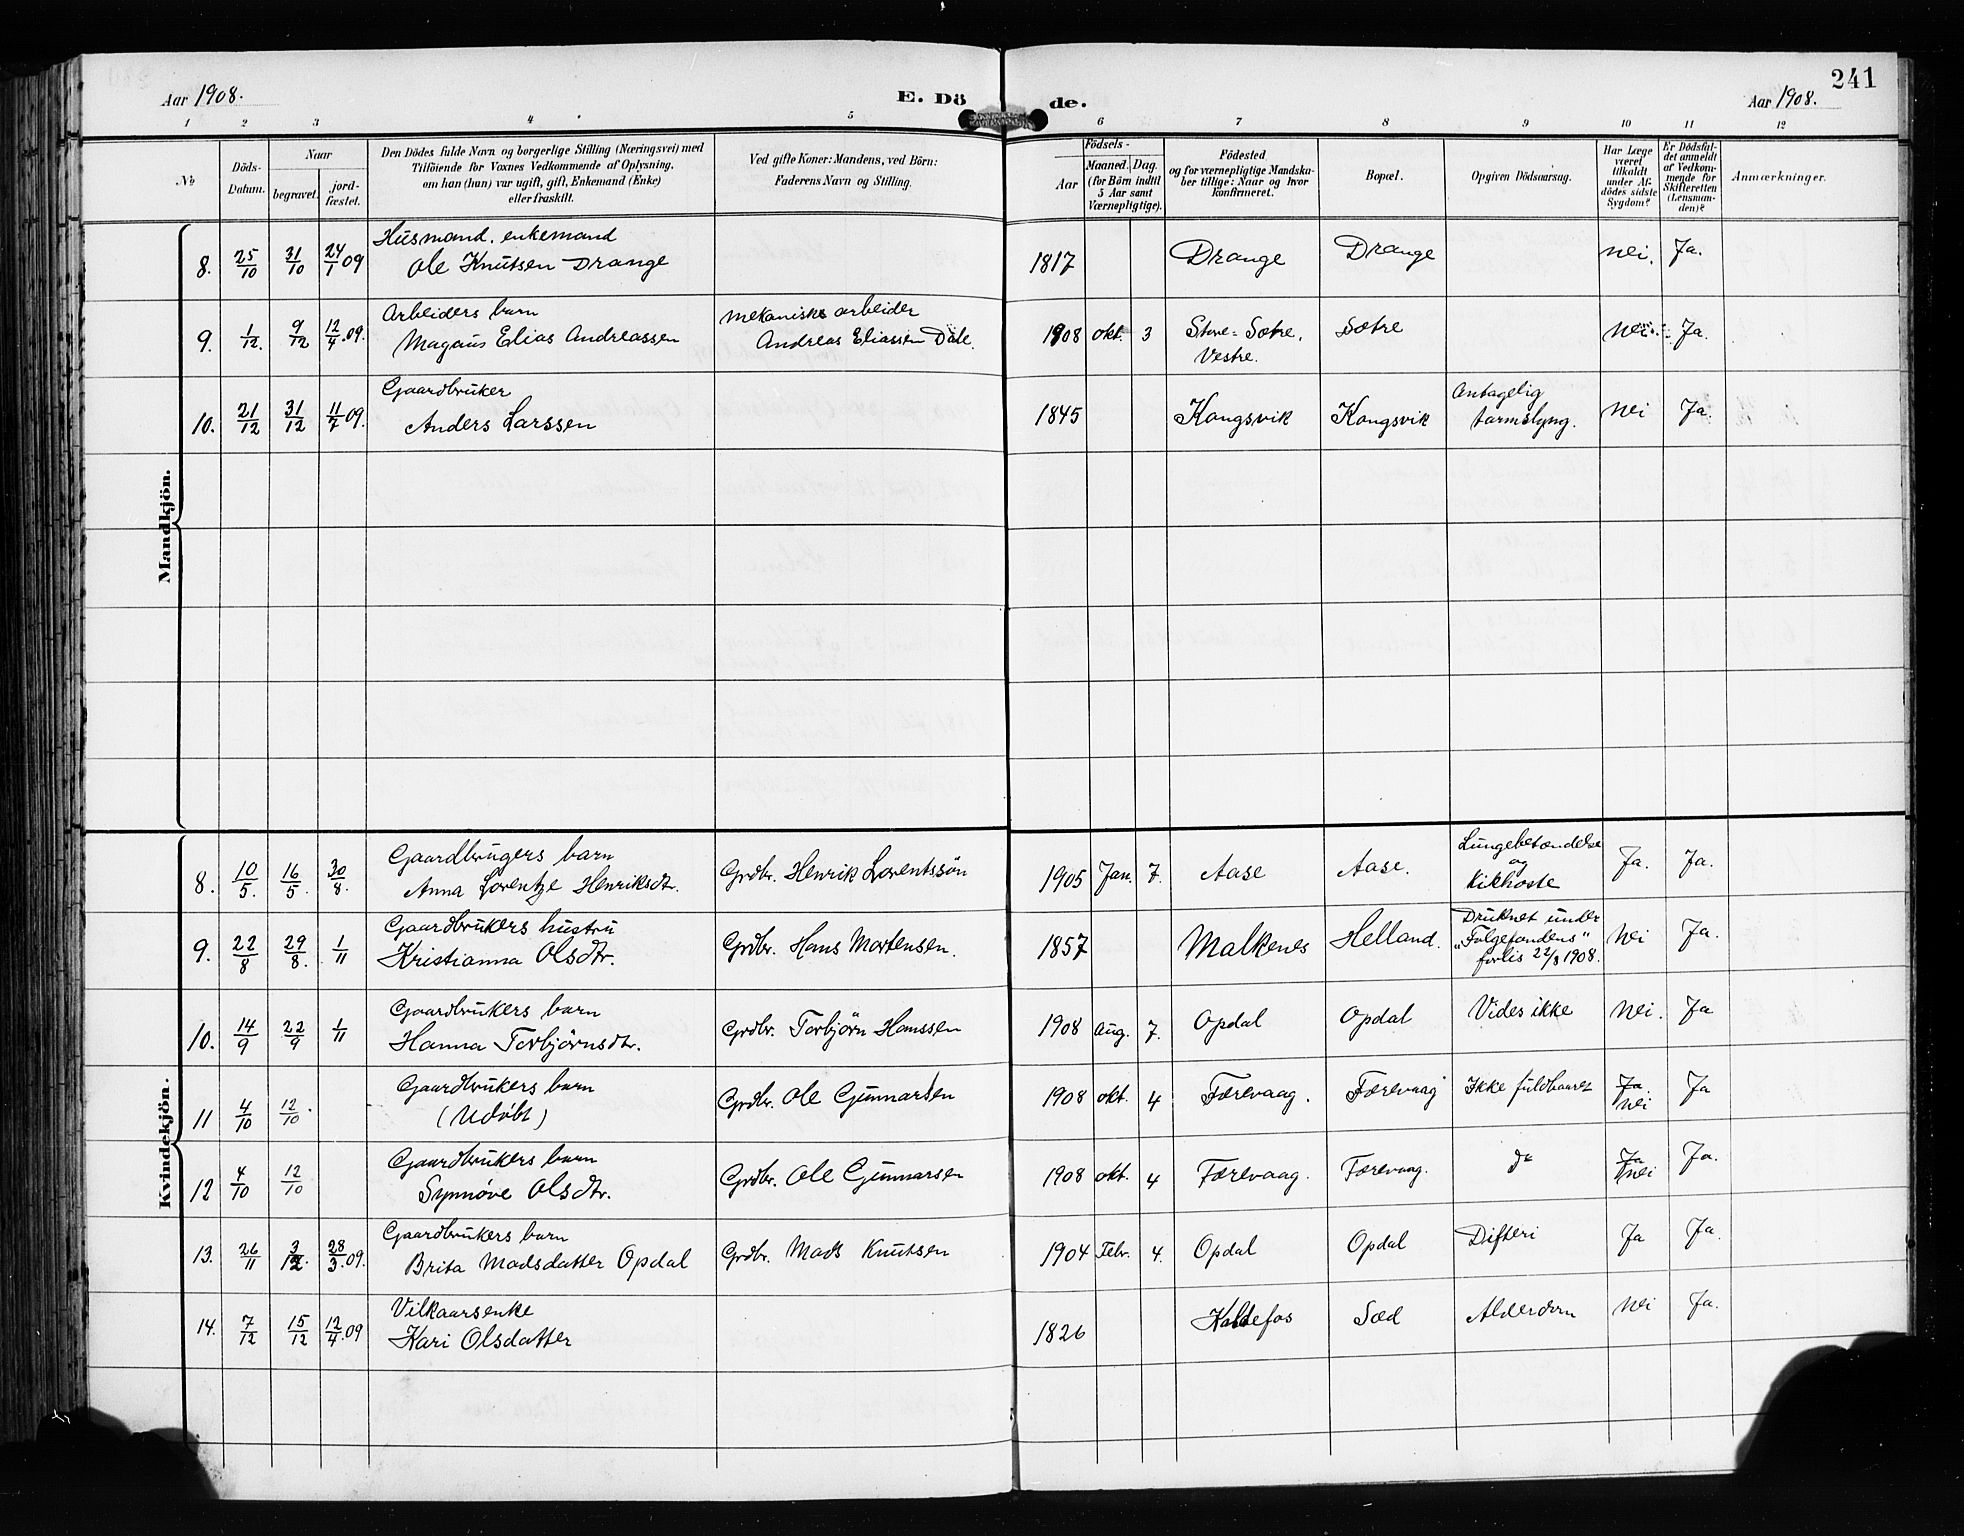 241
Aar 1908.
E. Dö de.
Aar 1908.
1 2 3 4 5 6 7 8 9 10 11 12
No
Döds-
Datum.
Naar
begravet.
jord-
fæstet.
Den Dödes fulde Navn og borgerlige Stilling (Næringsvei) med
Tilföiende for Voxnes Vedkommende af Oplysning,
om han (hun) var ugift, gift, Enkemand (Enke)
eller fraskilt.
Ved gifte Koner: Mandens, ved Börn:
Faderens Navn og Stilling.
Födsels-
Aar
Maaned. Dag.
(for Börn indtil
5 Aar samt
Værnepligtige).
Födested
og for værnepligtige Mandska-
ber tillige: Naar og hvor
konfirmeret.
Bopæl.
Opgiven Dödsaarsag.
Har Læge
været
tilkaldt
under Af-
dödes sidste
Sygdom?
Er Dödsfal-
det anmeldt
af Vedkom-
mende for
Skifteretten
(Lensman-
den)?
Anmærkninger.
Mandkjön.
8. 25/10 31/10 24/1 09 Husmand, enkemand
Ole Knutsen Drange 1817 Drange Drange nei. Ja.
9. 1/12. 9/12 12/4.09. Arbeiders barn
Magnus Elias Andreassen
mekanisk arbeider
Andreas Eliassen Dale. 1908 okt. 3 Store-Sætre,
Vestre. Sætre nei Ja.
10. 21/12 31/12 11/7 09. Gaardbruker
Anders Larssen 1845 Kongsvik Kongsvik Antagelig
tarmslyng. nei Ja.
Kvindekjön.
8. 10/5. 16/5. 30/8. Gaardbrugers barn
Anna Lorentze Henriksdtr. Grdbr. Henrik Lorentssön 1905 Jan. 7. Aase Aase. Lungebetændelse
og
Kikhoste Ja. Ja.
9. 22/8 29/8. 1/11 Gaardbrukers hustru
Kristianna Olsdtr. Grdbr. Hans Mortensen. 1857 Malkenes Helland. Druknet under
"Folgefondens"
forlis 22/8 1908. Nei Ja.
10. 14/9 22/9 1/11 Gaardbrukers barn
Hanna Torbjörnsdtr. Grdbr. Torbjörn Hanssen 1908 Aug. 7. Opdal Opdal Vides ikke Nei. Ja
11 4/10 12/10. Gaardbrukers barn
(Udöbt) Grdbr. Ole Gunnarsen 1908 okt. 4 Færevaag. Færevaag Ikke fuldbaaret Ja
nei Ja
12 4/10 12/10 Gaardbrukers barn
Synnöve Olsdtr. Grdbr. Ole Gunnarsen 1908 okt. 4 Færevaag. Færevaag. do Ja
nei Ja.
13. 26/11 3/12. 28/3.09. Gaardbrukers barn
Brita Madsdatter Opdal Grdbr. Mads Knutsen 1904 Febr. 4. Opdal Opdal Difteri Ja Ja.
14. 7/12 15/12 12/4.09 Vilkaarsenke
Kari Olsdatter 1826 Kaldefos Sæd Alderdom Nei Ja.